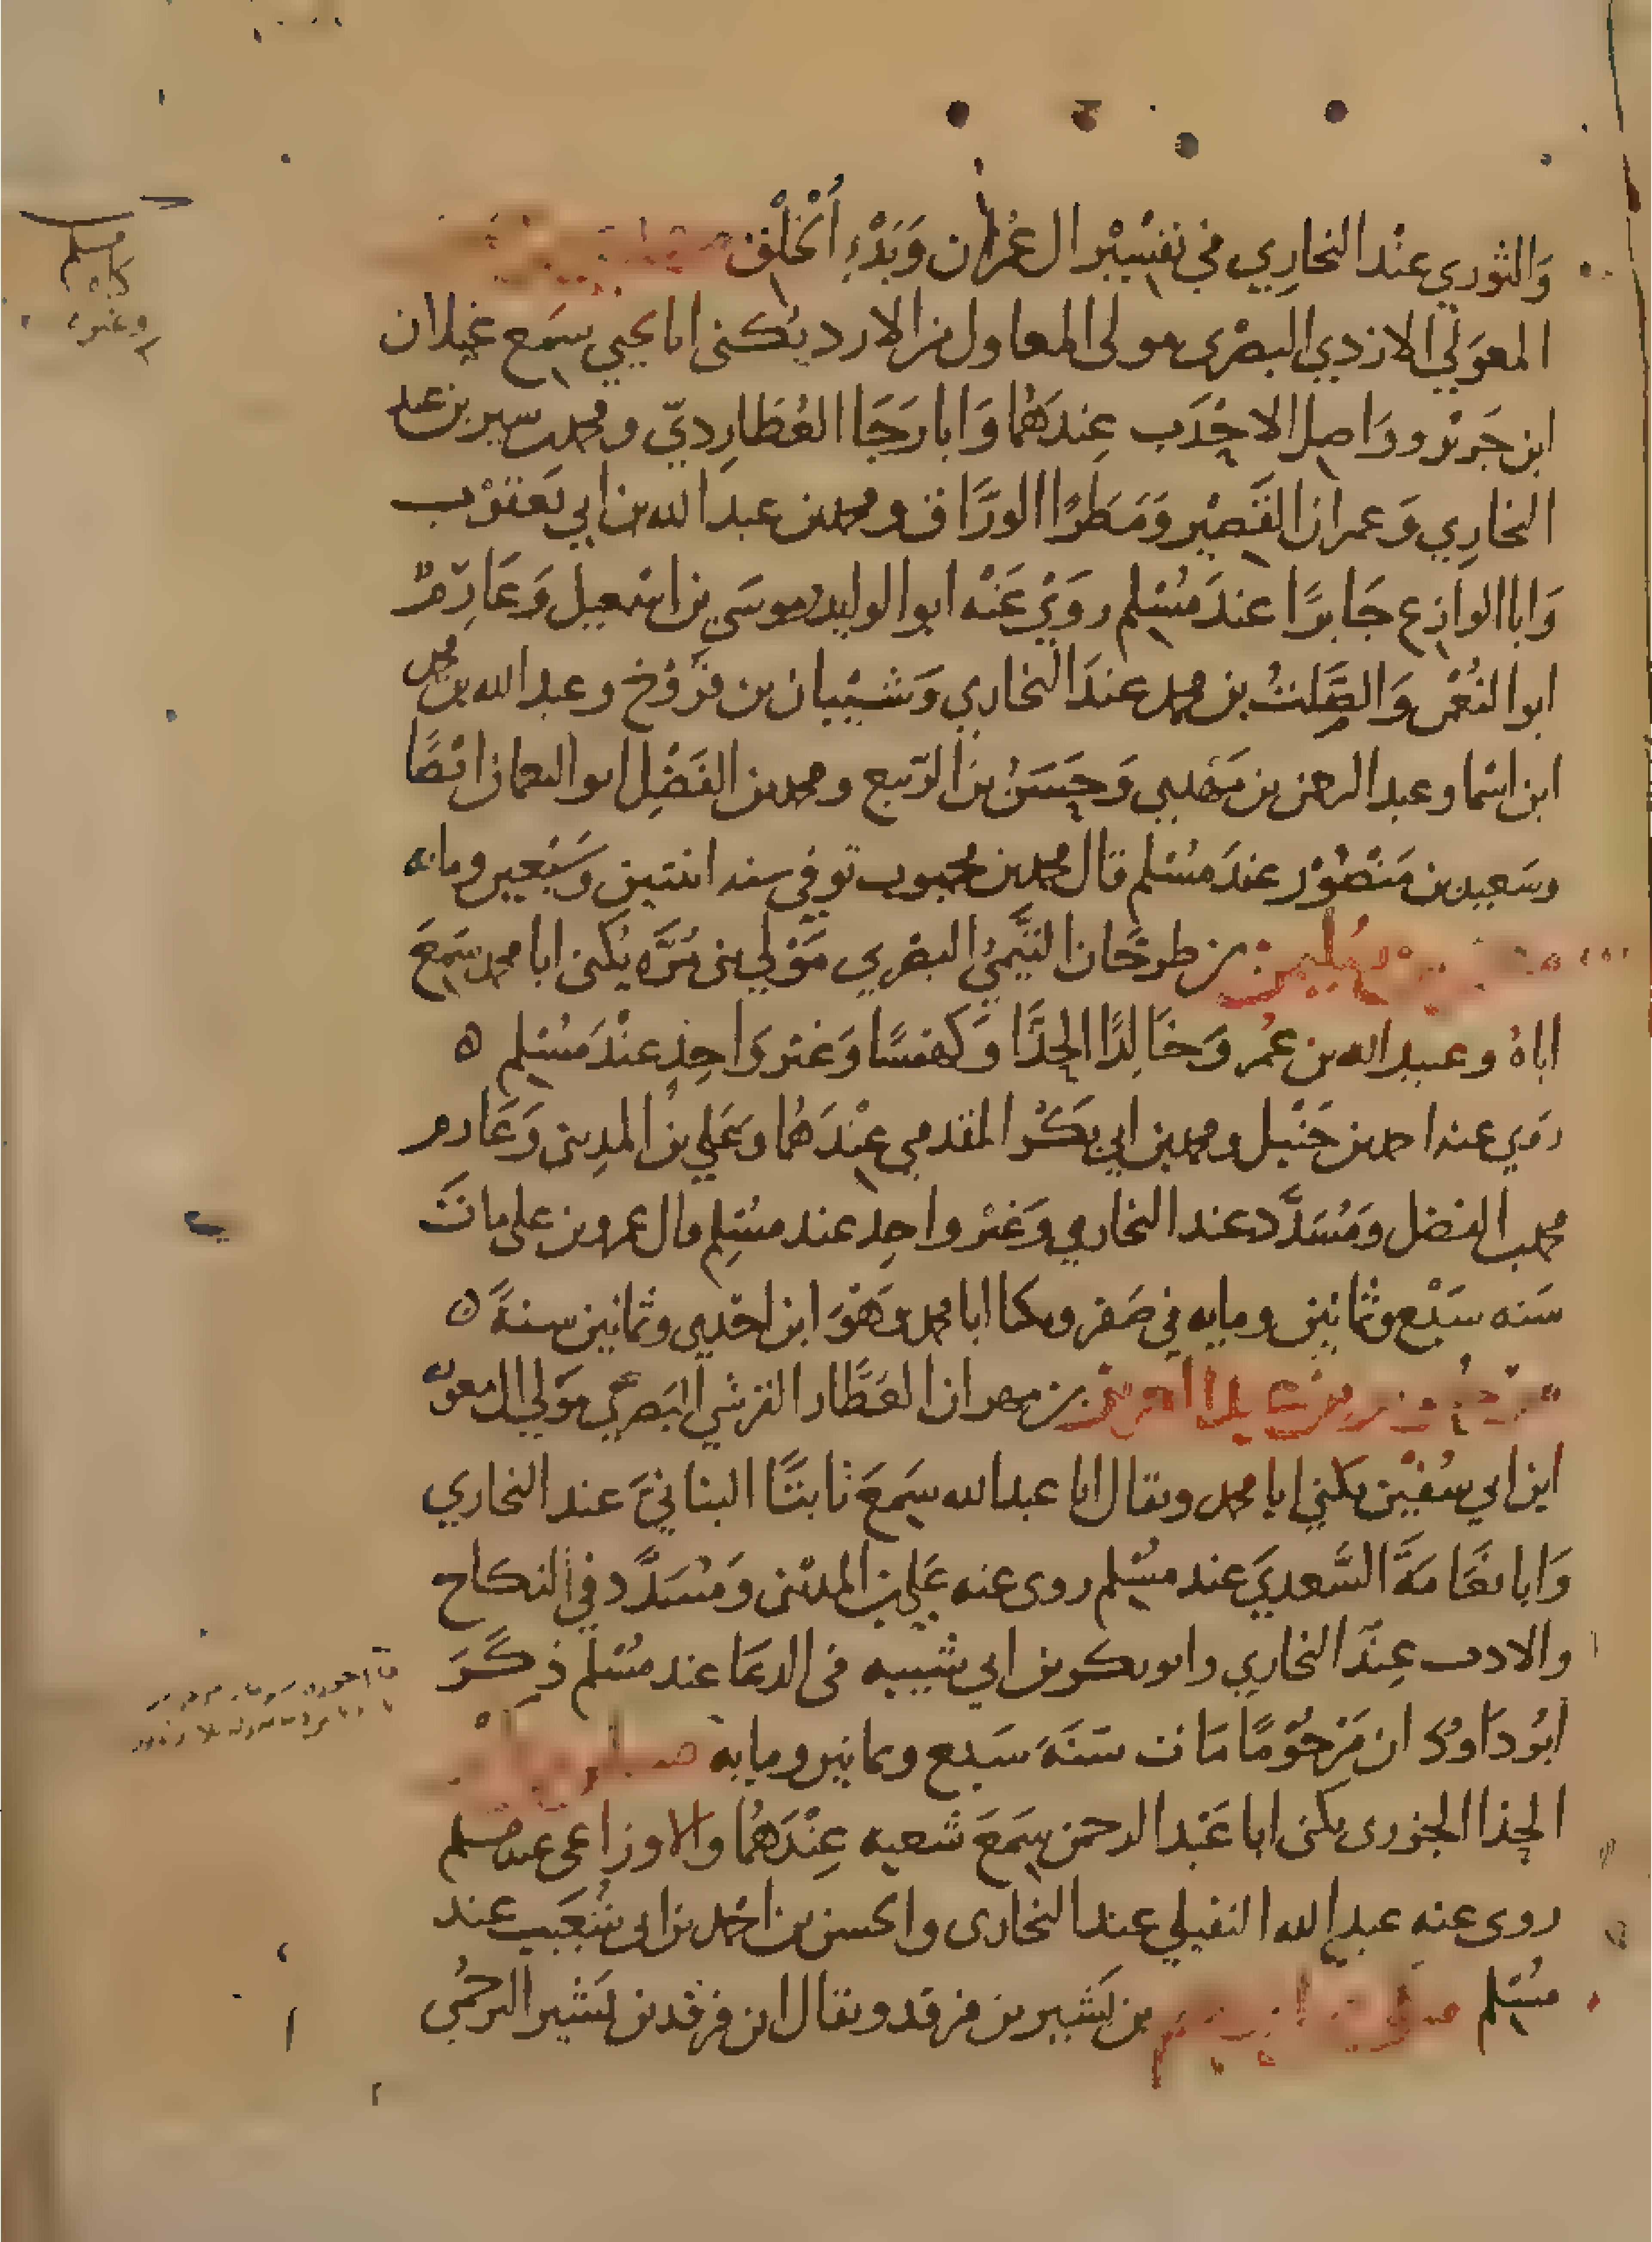 وَالثوري عنْد البخارِي في تفسِيْر ال عُمْران وَبَدْءِ الْخَلْق
المعوَلي الازدي البصْرى مولى المعاول من الازد يُكنى ابا يحيي سَمِع غيلان
ابن جَرير ووَاصِل الاحْدَب عِندَهُما وَابا رَجَا العُطَارِديّ ومحمد بن سيرين عند
البخارِي وَعمران القَصِيْر وَمَطَرًا الورَّاق ومحمد بن عبد الله بن ابي يَعقوْب
وَابا الوازِع جَابرًا عندَ مُسْلم روَيْ عَنْه ابو الوليد وموسَي بن اسْمعيل وَعَارِمٌ
ابو النُعْمن وَالصَّلتُ بن محمد عندَ البخاري وَشَيْبان بن فرُّوْخ وعبد الله بن محمد
ابن اسْما وعبد الرحمن بن مَهْديي وَحَسَنُ بن الرَّبيع ومحمد بن الفَضْل ابو النعمان ايْضًا
وسَعيد بن مَنْصُوْر عندَ مسْلم قال محمد بن محبوب توفي سنه اثنتين وسَبْعين ومائه
سُليمن بن طرخَان التَّيْميُ البصْري مَوْلي بني مُرَّه يُكنى ابا محمد سَمِعَ
اباهُ وعبيد الله بن عُمر وَخَالِدًا الحذَّا وَكَهْمسًا وَغير وَاحِدٍ عنْدَ مُسْلم ه
رَوي عنه احمد بن حَنْبل ومحمد بن ابي بكْر المقدمي عِنْدَهُما وعَلي بن المدِيني وَعَارم
محمد بن الفضل وَمُسَدَّد عند البخاري وَغَيْر واحِد عند مسْلم قال عمرو بن علي ماتَ
سَنه سَبْع وثمانِين ومايه في صَفر ويكنا ابا محمد وَهْوَ ابن احْدي وثمانِين سنةً ه
مرْحُوم بن عبد العزيز بن مهران العَطَّار القرشي البَصرِي مَوْلي ال معوية
ابن ابي سُفيْن يكني ابا محمد ويقال ابا عبد الله سَمِعَ ثابتًا البنانيَ عند البخاري
وَابا نعَامَةَ السَّعديَ عند مسْلم روى عنه عَلي بن المديني وَمُسَدَّد في النكاح
والادب عِنْدَ البخاري وابو بكر بن ابي شَيبه في الدعَا عند مسْلم ذكَرَ
ابُو دَاوُد ان مَرْحُوْمًا مَات سَنَةَ سَبع وثمانين ومايه مسكين بن بُكَيْر
الحذا الجزرى يكنى ابا عَبْد الرحمن سَمِعَ شعبه عِنْدَهُما والاوزاعى عند مسلم
روى عنه عبد الله النفيلي عند البخارى والحسن بن احْمد بن ابي شعَيب عند
مسْلم بن بَشير بن فرقد ويقال ابن فرقد بن بَشير البرجُمي
مسلم
وغيره